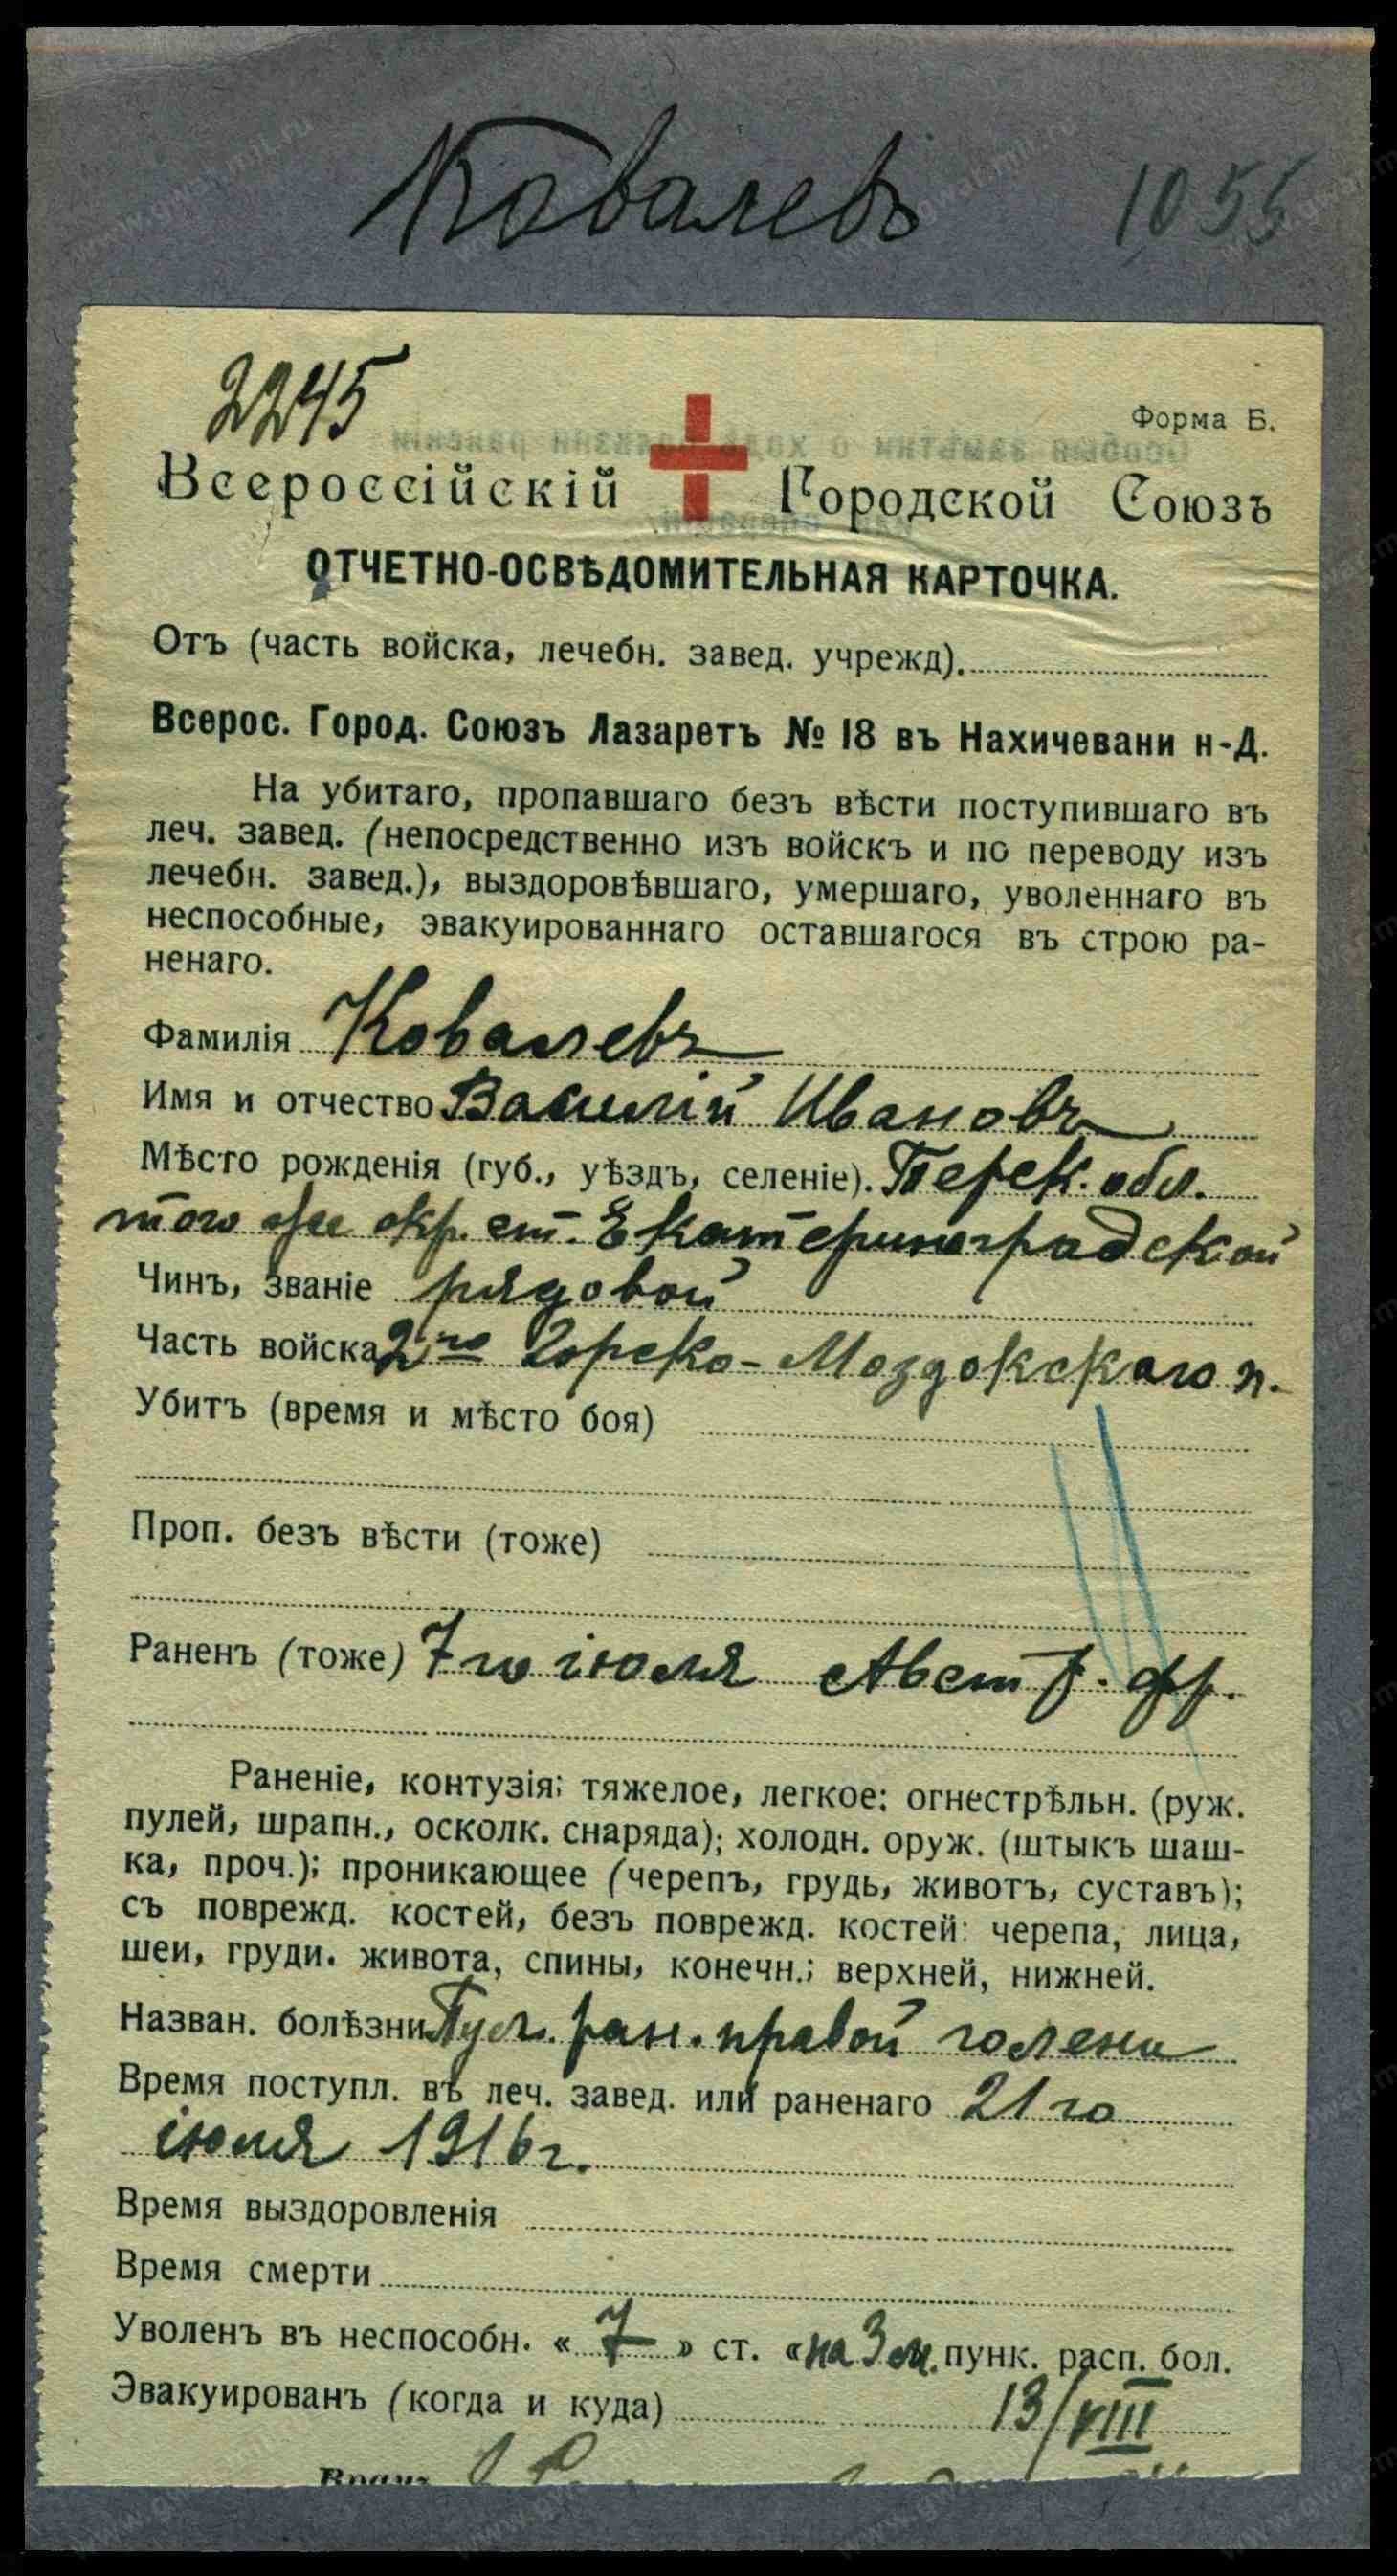 Ковалевъ 1055
2245
Форма Б.
Всероссійскій Городской Союзъ
ОТЧЕТНО-ОСВѢДОМИТЕЛЬНАЯ КАРТОЧКА.
Отъ (часть войска, лечебн. завед. учрежд).
Всерос. Город. Союзъ Лазаретъ № 18 въ Нахичевани н-Д.
На убитаго, пропавшаго безъ вѣсти поступившаго въ
леч. завед. (непосредственно изъ войскъ и по переводу изъ
лечебн. завед.), выздоровѣвшаго, умершаго, уволеннаго въ
неспособные, эвакуированнаго оставшагося въ строю ра-
ненаго.
Фамилія Ковалевъ
Имя и отчество Василій Ивановъ
Мѣсто рожденія (губ., уѣздъ, селеніе). Терек. обл.
того же окр. ст. Екатериноградской
Чинъ, званіе рядовой
Часть войска 2го Горско-Моздокскаго п.
Убитъ (время и мѣсто боя)
Проп. безъ вѣсти (тоже)
Раненъ (тоже) 7го іюля Авст р. фр.
Раненіе, контузія; тяжелое, легкое: огнестрѣльн. (руж.
пулей, шрапн., осколк. снаряда); холодн. оруж. (штыкъ шаш-
ка, проч.); проникающее (черепъ, грудь, животъ, суставъ);
съ поврежд. костей, безъ поврежд. костей: черепа, лица,
шеи, груди. живота, спины, конечн.; верхней, нижней.
Назван. болѣзни Пул. ран. правой голени
Время поступл. въ леч. завед. или раненаго 21го
іюля 1916г.
Время выздоровленія
Время смерти
Уволенъ въ неспособн. « 7 » ст. «на 3 м. пунк. расп. бол.
Эвакуированъ (когда и куда) 13/VIII
Врачъ